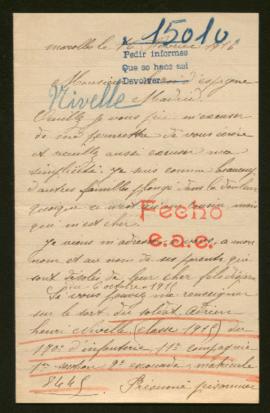 15010
Pedir informes
Que se haga así
Devolver
Marolles le 16 février 1916
Monsieur d'espagne
Nivelle
Madrid.
Veuillez je vous prie m'excuser
de me permettre de vous écrire
et veuillez aussi excuser ma
simplicité. Je suis comme beaucoup
d'autres familles plongé dans la douleur
quoique ce n'est qu'un cousin mais
qui m'est cher
Fecho
e.a.c.
Je viens m'adresser à vous, a mon
nom et au nom de ses parents qui
sont désolés de leur cher fils disparu
Le 6 octobre 1915
Si vous pouvez me renseigner
sur le sort du soldat Adrien
henri Nivelle (classe 1915) du
170e d'infanterie 11e compagnie
1re section 9e escouade matricule
8445
Présumé prisonnier